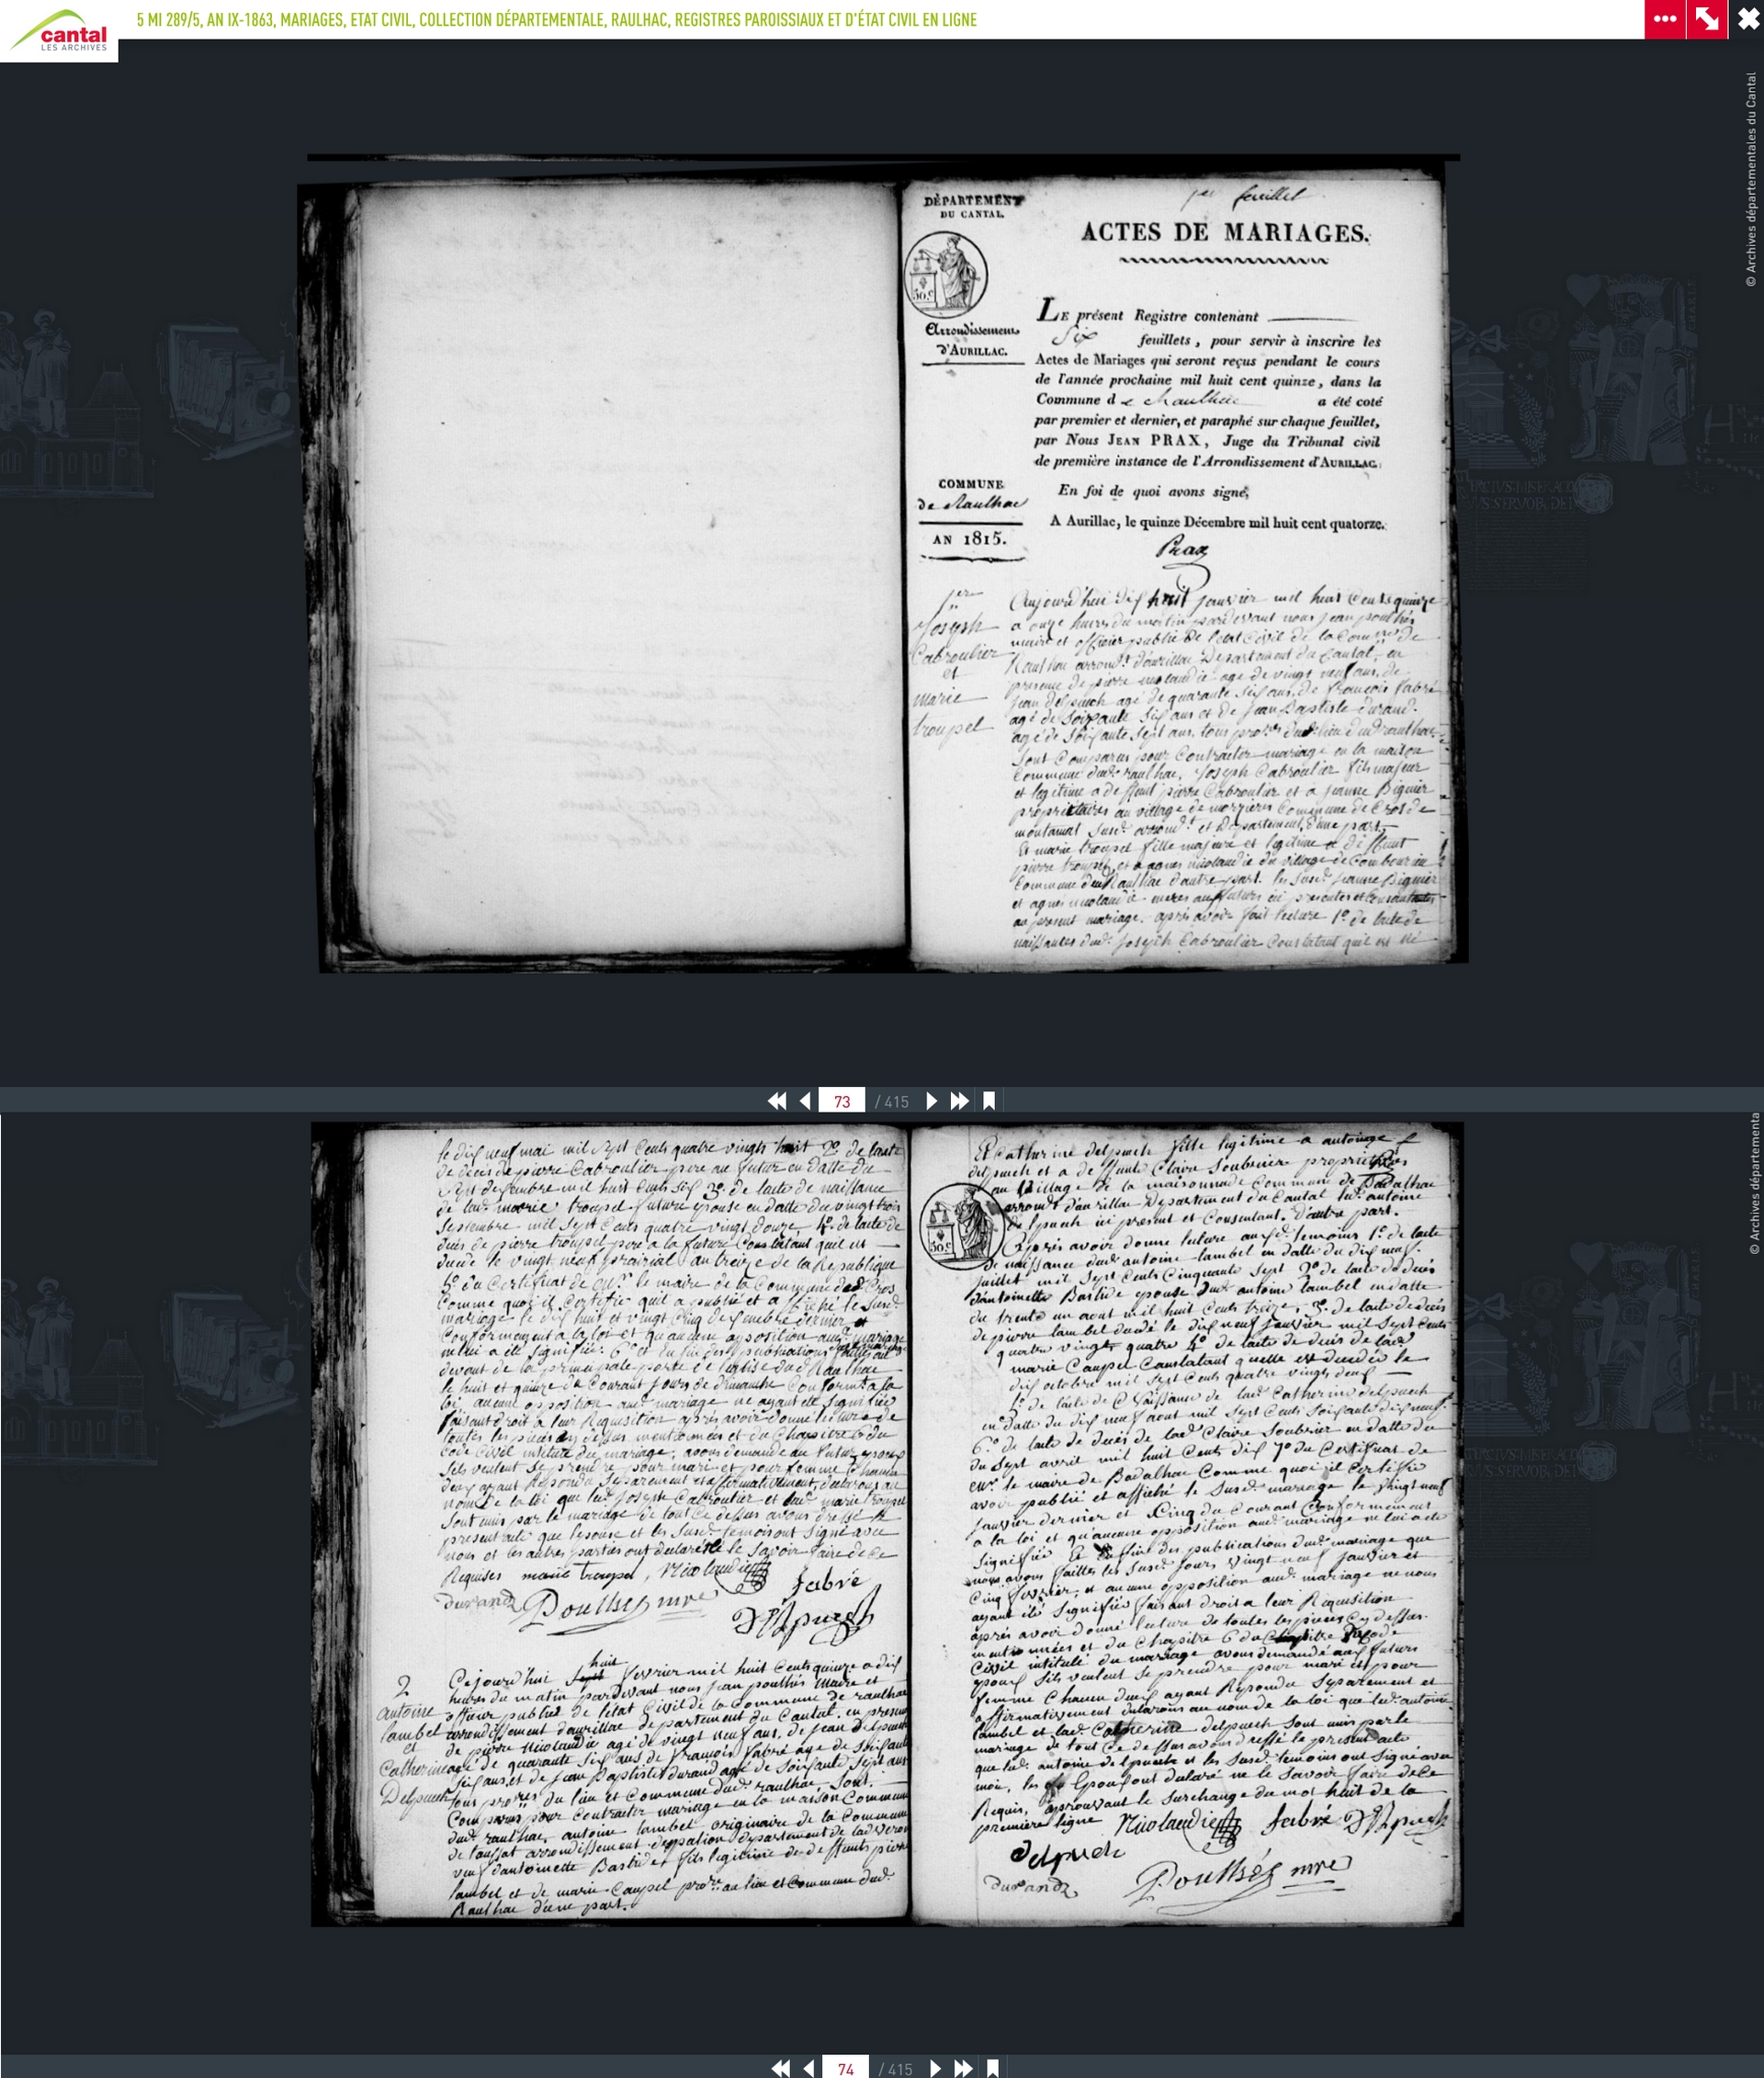 cantal
LES ARCHIVES
5 MI 289/5, AN IX-1863, MARIAGES, ETAT CIVIL, COLLECTION DÉPARTEMENTALE, RAULHAC, REGISTRES PAROISSIAUX ET D'ÉTAT CIVIL EN LIGNE
© Archives départementales du Cantal
1er feuillet
DÉPARTEMENT
DU CANTAL.
50.c
Arrondissement
d'AURILLAC.
COMMUNE
de Raulhac
AN 1815.
ACTES DE MARIAGES.
LE présent Registre contenant
Six feuillets, pour servir à inscrire les
Actes de Mariages qui seront reçus pendant le cours
de l'année prochaine mil huit cent quinze, dans la
Commune de Raulhac a été coté
par premier et dernier, et paraphé sur chaque feuillet,
par Nous JEAN PRAX, Juge du Tribunal civil
de première instance de l'Arrondissement d'AURILLAC.
En foi de quoi avons signé,
A Aurillac, le quinze Décembre mil huit cent quatorze.
Prax
1er
Joseph
Cabroulier
et
marie
troupel
Aujourd'hui dix huit janvier mil huit Cents quinze
a onze heures du matin pardevant nous jean poulhès
maire et officier public de l'etat Civil de la Commne de
Raulhac arrondt d'aurillac Departement du Cantal, en
presence de pierre nicolaudie agé de vingt neuf ans, de
jean delpuech agé de quarante six ans, de françois fabré
agé de Soixante Six ans et de jean Baptiste durand
agé de Soixante Sept ans, tous propres du lieu dud. raulhac
Sont Comparus pour Contracter mariage en la maison
Commune dud. raulhac, Joseph Cabroulier fils majeur
et legitime a deffunt pierre Cabroulier et a jeanne Bignier
propriétaires au village de Commune de Cros de
montamat Susd. arrondt et Departement, d'une part,
Et marie troupel fille majeure et legitime a deffunt
pierre troupel, et a agnes nicolaudie du village de
Commune dud Raulhac d'autre part. les Susd. jeanne Bignier
et agnes nicolaudie meres aux futurs ici presentes et Consentantes
au present mariage. après avoir fait lecture 1º. de l'acte de
naissances dud. Joseph Cabroulier Constatant qu'il est né
73 / 415
le dix neuf mai mil Sept Cents quatre vingts huit 2º. de l'acte
de décès de pierre Cabroulier pere au futur en datte du
Sept decembre mil huit Cents Six 3º. de l'acte de naissance
de lad. marie troupel future epouse en datte du vingt trois
Septembre mil Sept Cents quatre vingt douze 4º. de l'acte de
décès de pierre troupel pere a la future Constatant qu'il est
decedé le vingt neuf prairial an treize de la Republique
5º. du Certificat de mr. le maire de la Commune de Cros
Comme quoi il Certifie qu'il a publié et affiché le Susd.
mariage le dix huit et vingt Cinq decembre dernier
Conformement a la loi et qu'aucune opposition aud. mariage
ne lui a été Signifiée. 6º. des publications faites au
devant de la principale porte de l'eglise dud Raulhac
le huit et quinze du Courant jours de dimanche Conformt a la
loi, aucune opposition aud. mariage ne ayant eté Signifiée
faisant droit a leur Requisition après avoir donné lecture de
toutes les pieces cy dessus mentionnées et du Chapitre 6 du
Code Civil intitulé du mariage, avons demandé au futur epoux
S'ils veulent Se prendre pour mari et pour femme Chacun
d'eux ayant Repondu Separement et affirmativement, declarons au
nom de la loi que led. Joseph Cabroulier et lad. marie troupel
Sont unis par le mariage de tout Ce dessus avons dressé le
present acte que l'epouse et les Susd. temoins ont Signé avec
nous et les autres parties ont declaré ne le Savoir faire de Ce
Requises marie troupel, Nicolaudie
durand Poulhés mre fabré
Delpuech
2
Antoine
lambel
et
Catherine
Delpuech
Cejourd'hui huit fevrier mil huit Cents quinze a dix
heures du matin pardevant nous jean poulhès Maire et
officier public de l'etat Civil de la Commune de raulhac
arrondissement d'aurillac departement du Cantal, en presence
de pierre Nicolaudie agé de vingt neuf ans, de jean delpuech
agé de quarante Six ans de françois fabré agé de Soixante
Six ans, et de jean Baptiste durand agé de Soixante Sept ans
tous propres du lieu et Commune dud. raulhac, Sont
Comparus pour Contracter mariage en la maison Commune
dud. raulhac, antoine lambel originaire de la Commune
de laussat arrondissement departement de
veuf d'antoinette Bastide et fils legitime de deffunts pierre
lambel et de marie Caupel propre au lieu et Commune dud.
Raulhac d'une part.
50.c
Et Catherine delpuech fille legitime a antoine
delpuech et a deffunte Claire Soubrier propriétaires
au Village de la maisonnade Commune de Badalhac
arrondt d'aurillac Departement du Cantal led. antoine
delpuech ici present et Consentant. d'autre part.
Après avoir donné lecture auxd. temoins 1º. de l'acte
de naissance dud. antoine lambel en datte du dix neuf
juillet mil Sept Cents Cinquante Sept 2º. de l'acte de decès
d'antoinette Bastide epouse dud. antoine lambel en datte
du trente un aout mil huit Cents treize, 3º. de l'acte de decès
de pierre lambel decedé le dix neuf janvier mil Sept Cents
quatre vingt quatre 4º. de l'acte de decès de lad.
marie Caupel Constatant qu'elle est decedée le
dix octobre mil Sept Cents quatre vingts neuf
5º. de l'acte de Naissance de lad. Catherine delpuech
en datte du dix neuf aout mil Sept Cents Soixante dix neuf.
6º. de l'acte de decès de lad. Claire Soubrier en datte du
du Sept avril mil huit Cents dix 7º. du Certificat de
mr. le maire de Badalhac Comme quoi il Certifie
avoir publié et affiché le Susd. mariage le vingt neuf
janvier dernier et Cinq du Courant Conformement
a la loi et qu'aucune opposition aud. mariage ne lui a eté
Signifiée Et des publications dud. mariage que
nous avons faittes les Susd. jours vingt neuf janvier et
Cinq fevrier, et aucune opposition aud. mariage ne nous
ayant été Signifiée faisant droit a leur Requisition
après avoir donné lecture de toutes les pieces Cy dessus
mentionnées et du Chapitre 6 du Code
Civil intitulé du mariage avons demandé aux futurs
epoux S'ils veulent Se prendre pour mari et pour
femme Chacun d'eux ayant Repondu Separement et
affirmativement declarons au nom de la loi que led. antoine
lambel et lad. Catherine delpuech Sont unis par le
mariage de tout Ce dessus avons dressé le present acte
que led. antoine delpuech et les Susd. temoins ont Signé avec
moi, les epoux ont declaré ne le Savoir faire de Ce
Requis, aprouvant le Surchange du mot huit de la
premiere ligne Nicolaudie fabré Delpuech
delpuech
durand Poulhés mre
© Archives départementa
74 / 415